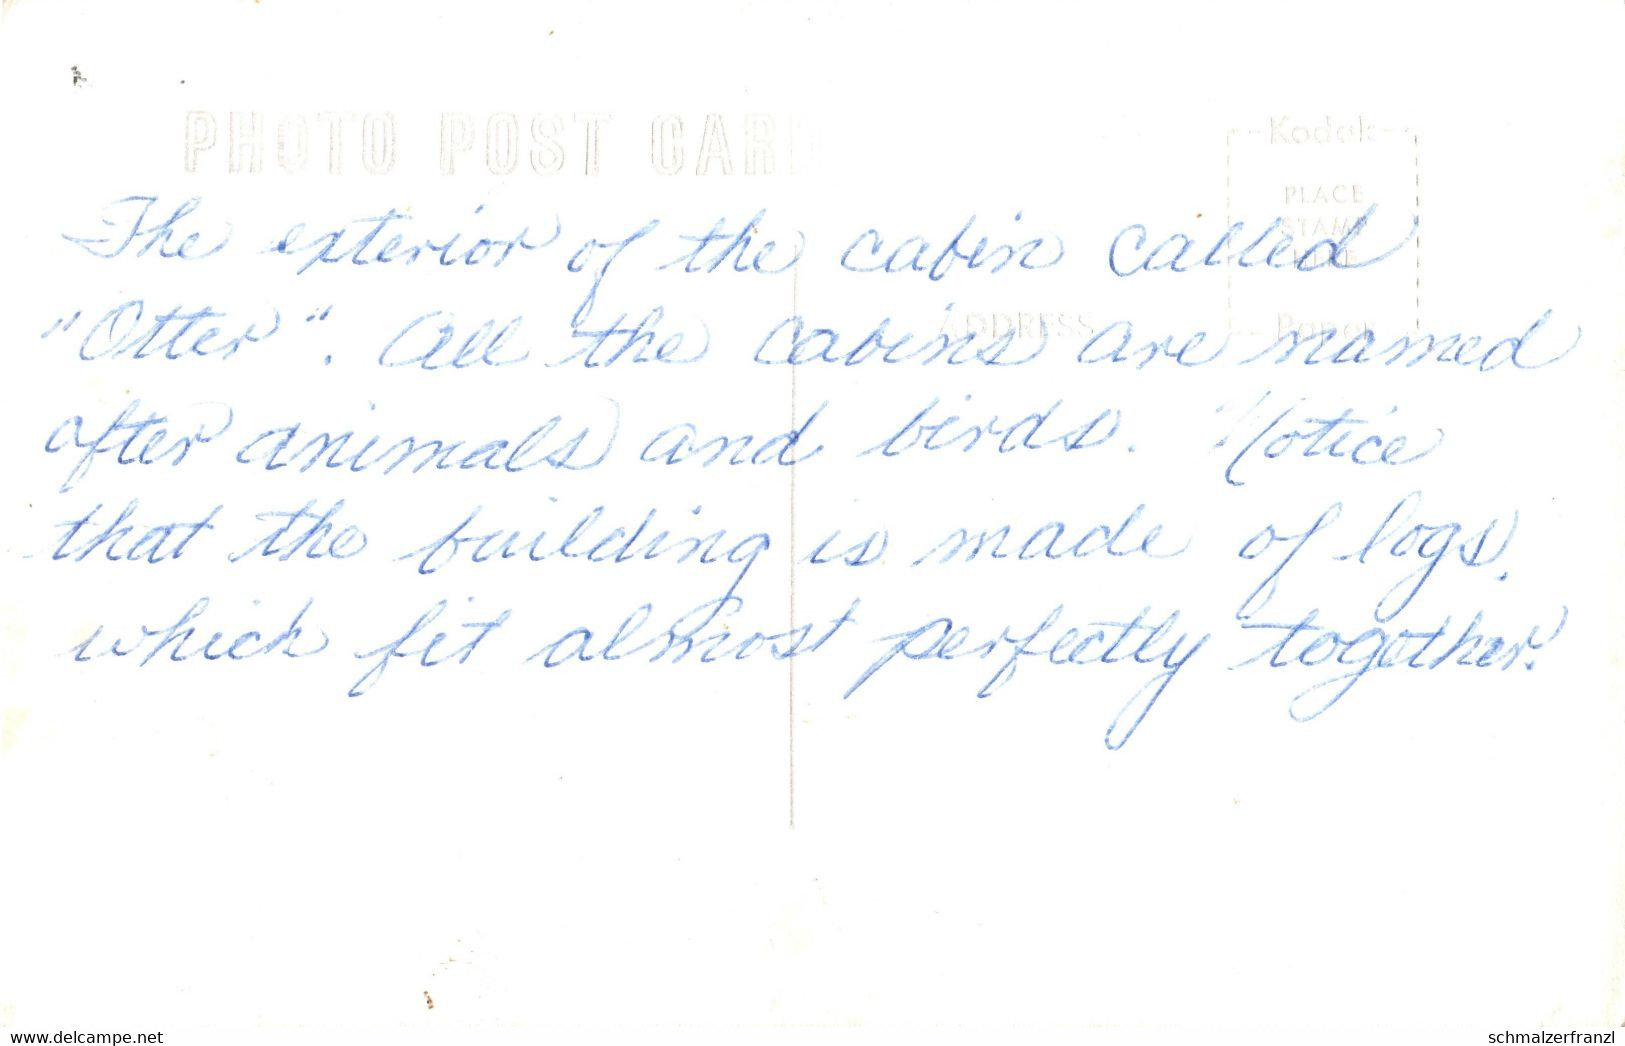 PHOTO POST CARD
Kodak
PLACE
STAMP
HERE
Paper
ADDRESS
The exterior of the cabin called
"Otter". All the cabins are named
after animals and birds. Notice
that the building is made of logs,
which fit almost perfectly together.
www.delcampe.net
schmalzerfranzl